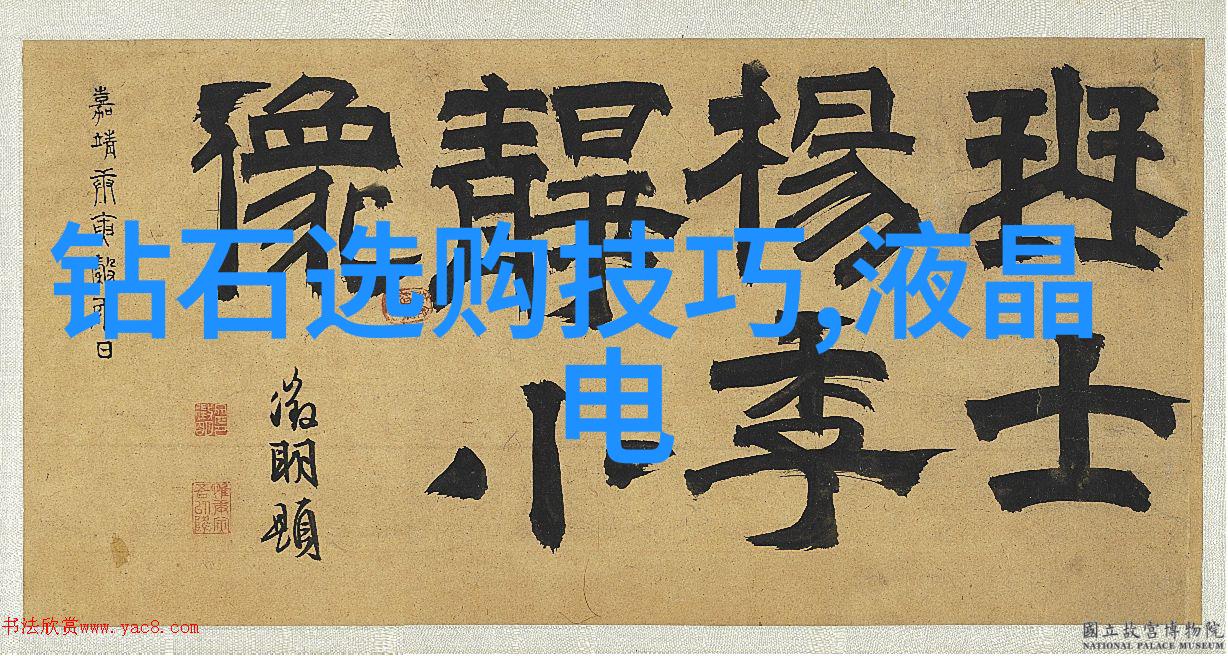 钻石选购技巧,液晶
电
琴士
楊季
靜小
像
嘉靖庚寅穀雨日
徵明題
书法欣赏www.yac8.com
國立故宮博物院
NATIONAL PALACE MUSEUM